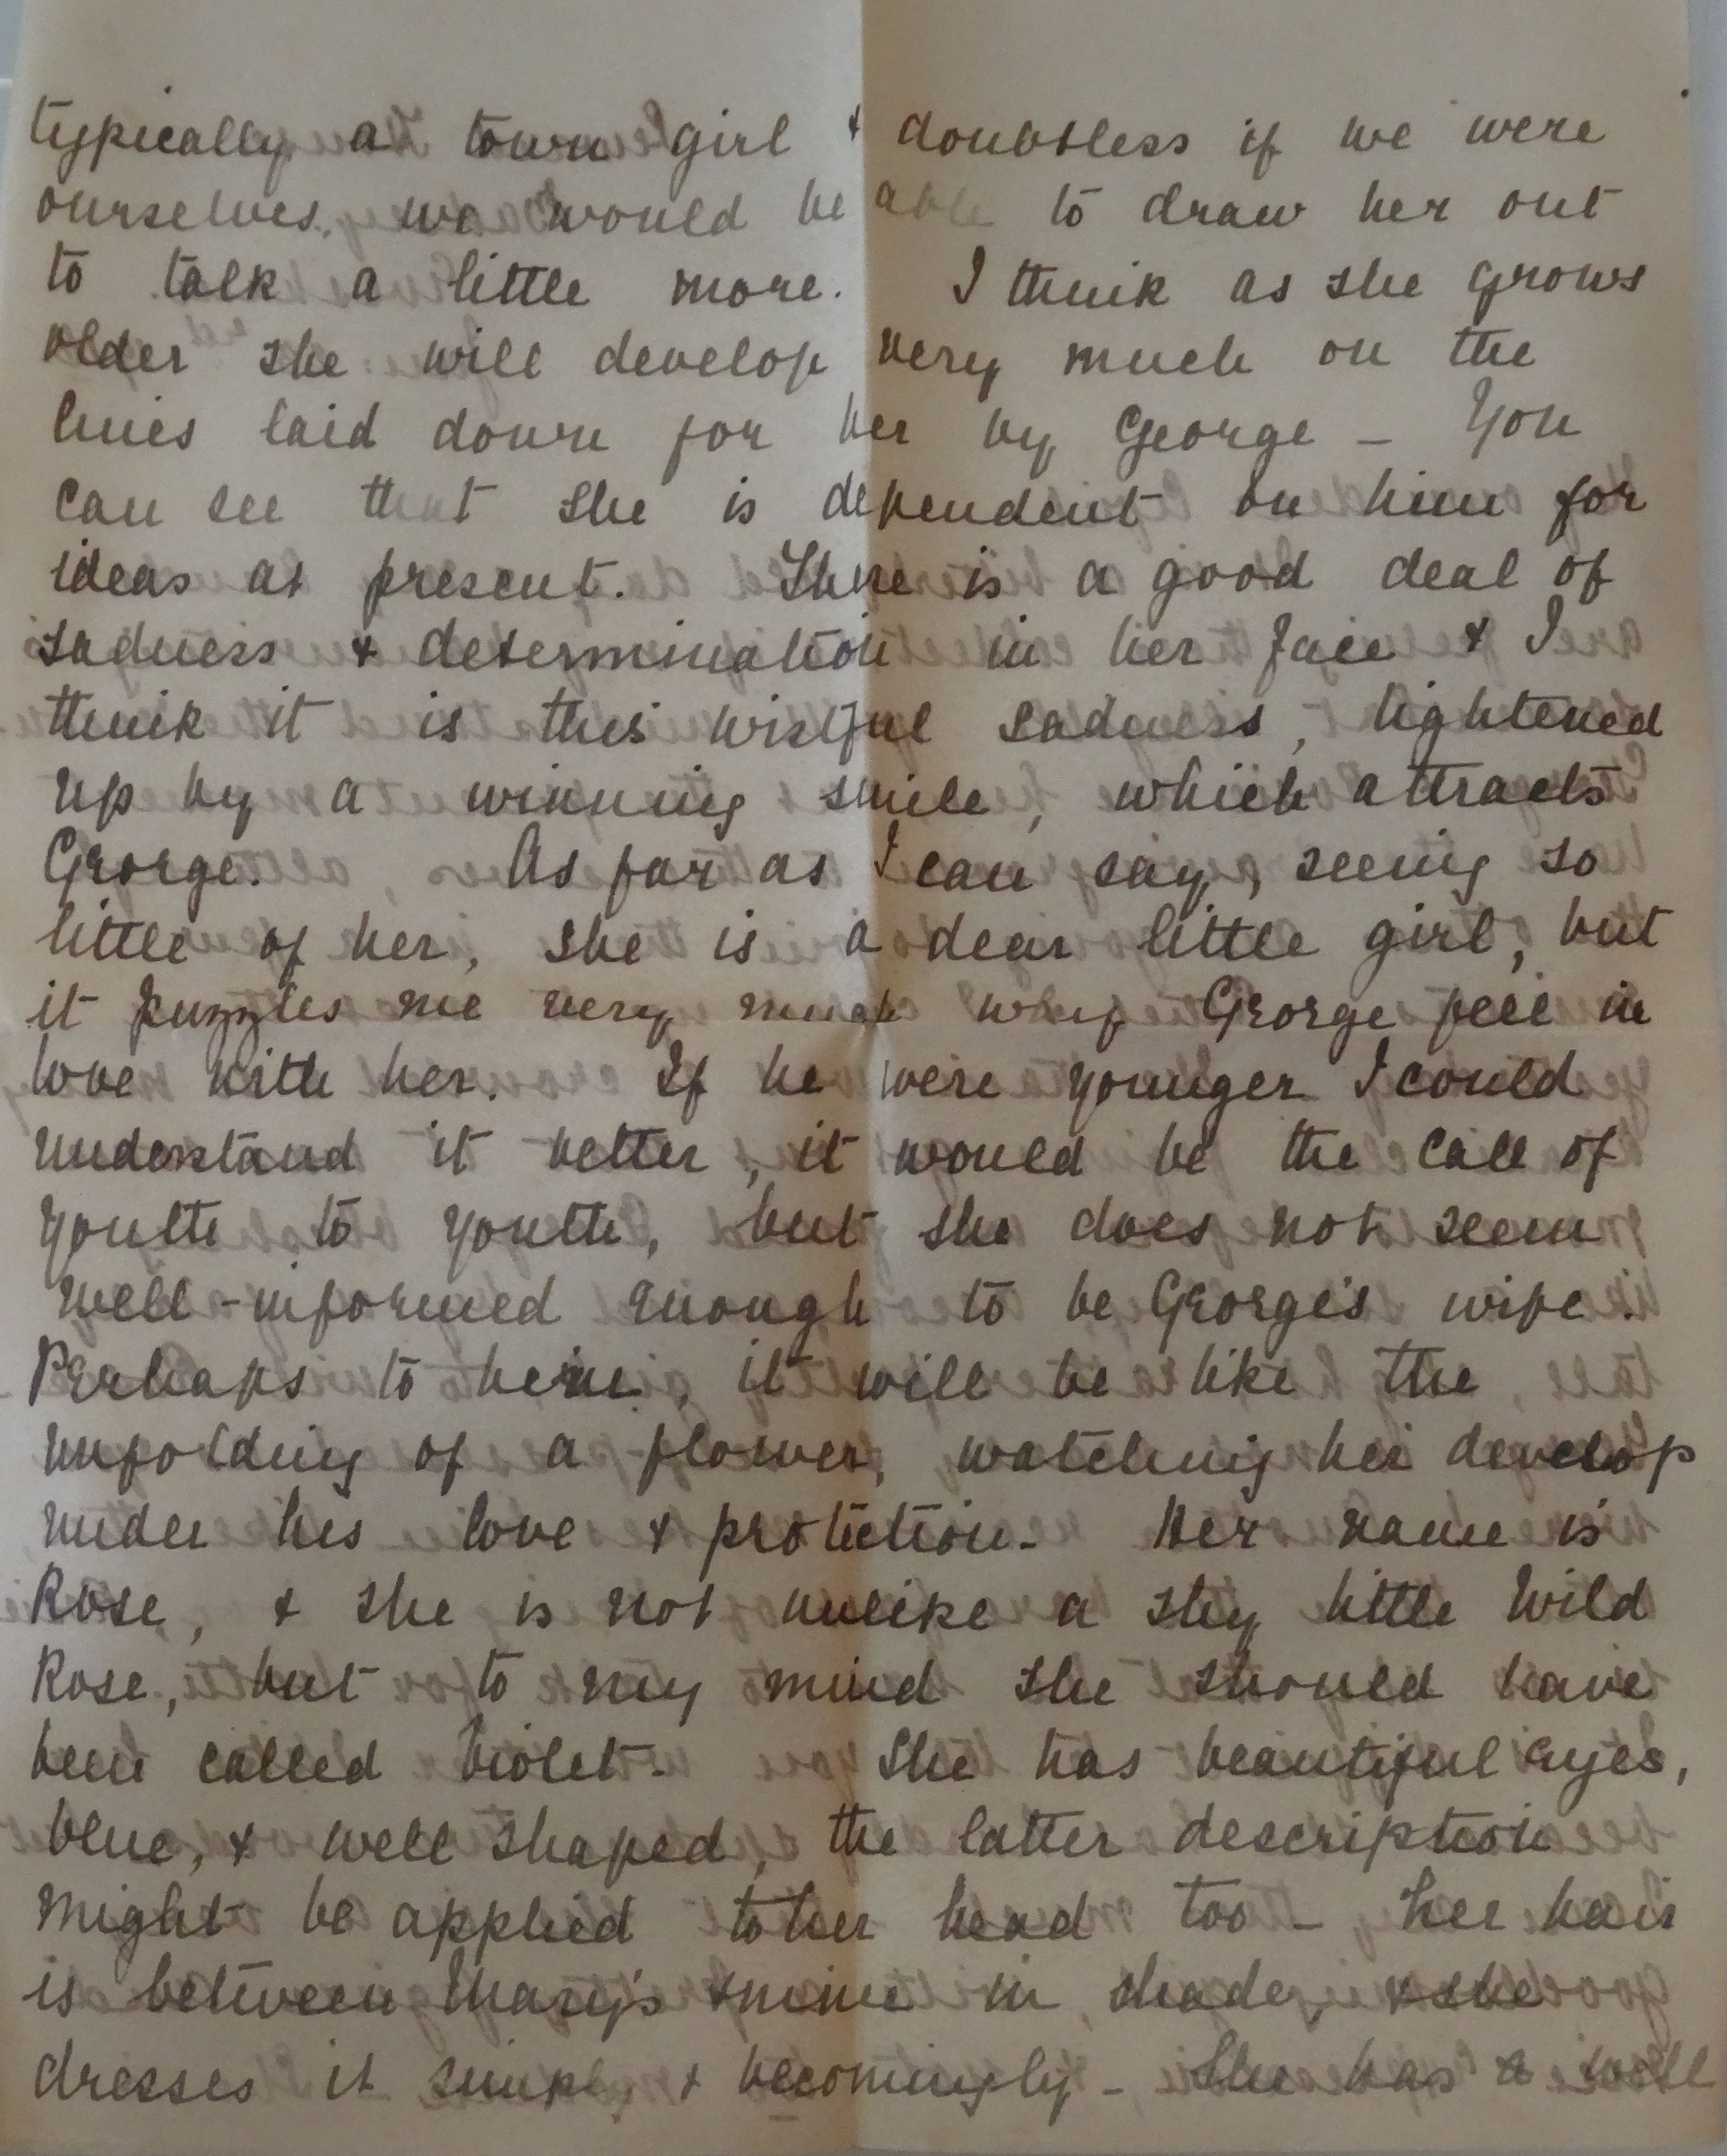 typically a town girl & doubtless if we were
ourselves, we would be able to draw her out
to talk a little more. I think as she grows
older she will develop very much on the
lines laid down for her by George – You
can see that she is dependent on him for
ideas at present. There is a good deal of
sadness & determination in her face & I
think it is this wistful sadness, lightened
up by a winning smile, which attracts
George. As far as I can say, seeing so
little of her, she is a dear little girl, but
it puzzles me very much why George fell in
love with her. If he were younger I could
understand it better, it would be the call of
youth to youth, but she does not seem
well-informed enough to be George's wife.
Perhaps to him, it will be like the
unfolding of a flower, watching her develop
under his love & protection. Her name is
Rose, & she is not unlike a shy little Wild
Rose, but to my mind she should have
been called Violet. She has beautiful eyes,
blue, & well shaped, the latter description
might be applied to her head too – her hair
is between Mary's & mine in shade, & she
dresses it simply & becomingly – She has a well